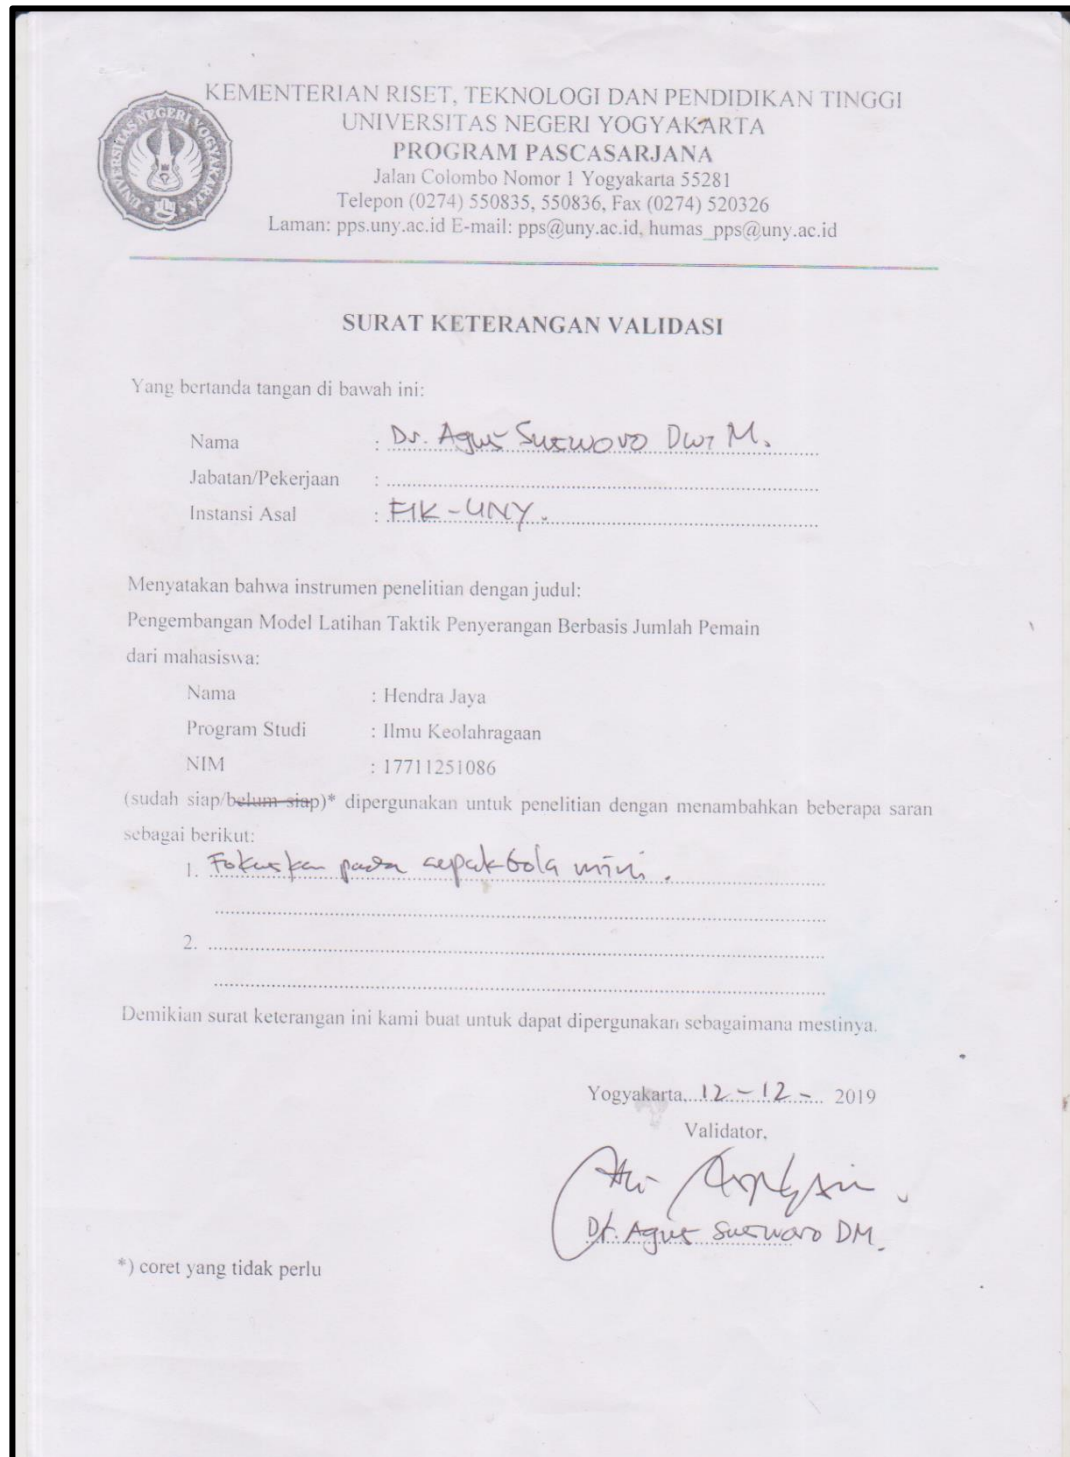 KEMENTERIAN RISET, TEKNOLOGI DAN PENDIDIKAN TINGGI
UNIVERSITAS NEGERI YOGYAKARTA
PROGRAM PASCASARJANA
Jalan Colombo Nomor 1 Yogyakarta 55281
Telepon (0274) 550835, 550836, Fax (0274) 520326
Laman: pps.uny.ac.id E-mail: pps@uny.ac.id, humas_pps@uny.ac.id
UNIVERSITAS NEGERI YOGYAKARTA
SURAT KETERANGAN VALIDASI
Yang bertanda tangan di bawah ini:
Nama : Dr. Agus Susworo Dwi M.
Jabatan/Pekerjaan :
Instansi Asal : FIK-UNY.
Menyatakan bahwa instrumen penelitian dengan judul:
Pengembangan Model Latihan Taktik Penyerangan Berbasis Jumlah Pemain
dari mahasiswa:
Nama : Hendra Jaya
Program Studi : Ilmu Keolahragaan
NIM : 17711251086
(sudah siap/belum siap)* dipergunakan untuk penelitian dengan menambahkan beberapa saran
sebagai berikut:
1. Fokuskan pada sepakbola mini.
2.
Demikian surat keterangan ini kami buat untuk dapat dipergunakan sebagaimana mestinya.
Yogyakarta, 12-12- 2019
Validator,
Dr. Agus Susworo DM.
*) coret yang tidak perlu